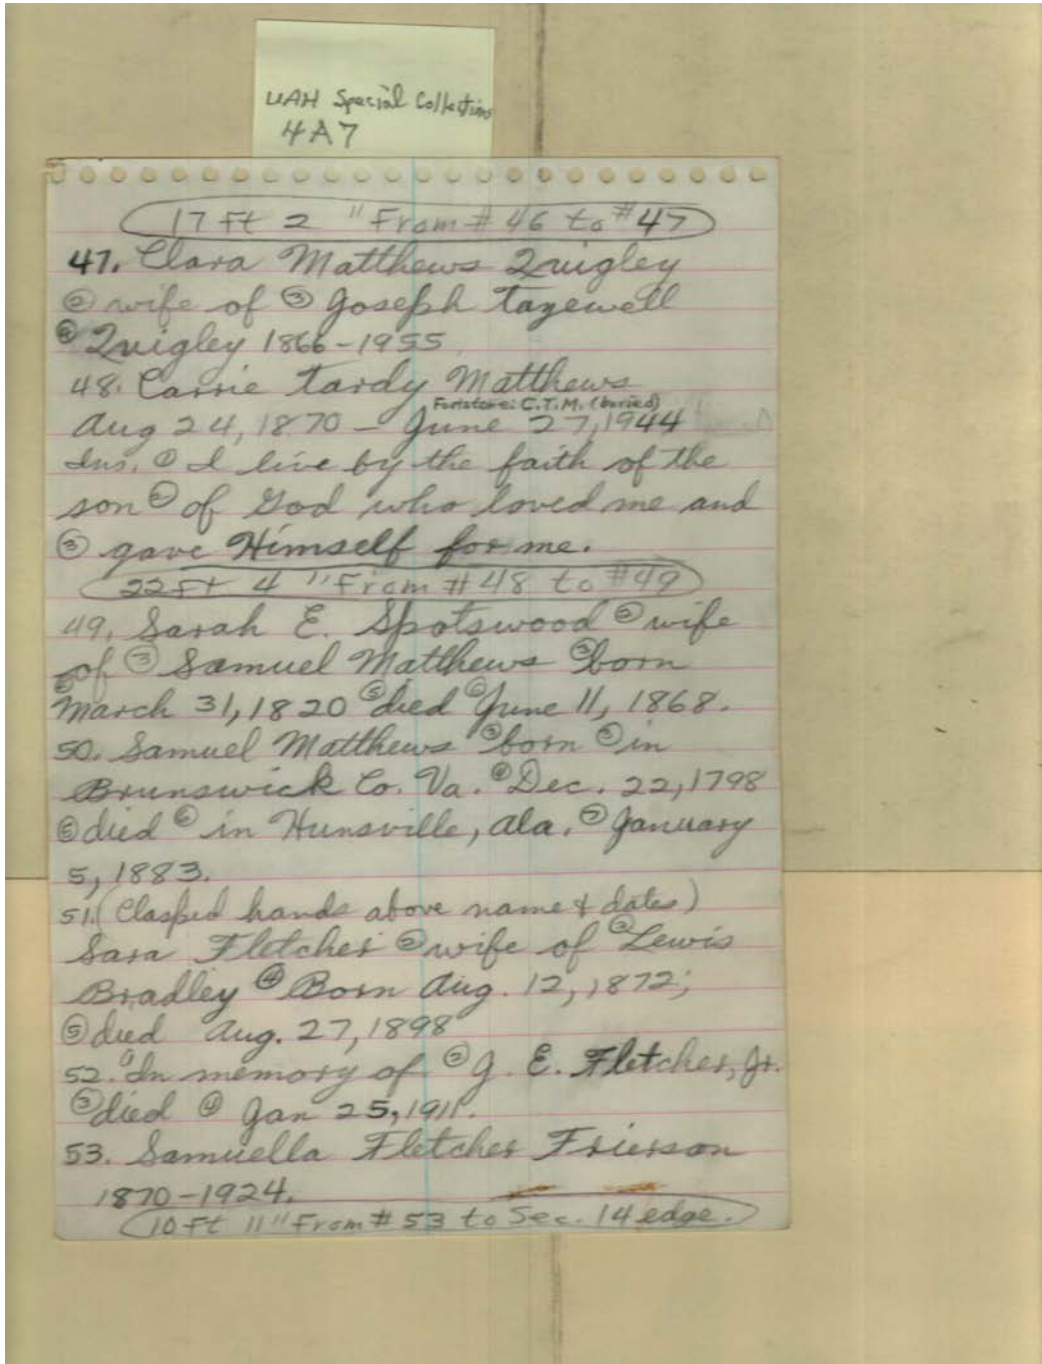 UAH Special Collections
4A7
17 ft 2 " From # 46 to #47
47. Clara Matthews Quigley
② wife of ③ Joseph Tazewell
④ Quigley 1866-1955
48. Carrie Tardy Matthews
Footstone: C.T.M. (buried)
Aug 24, 1870 - June 27, 1944
Ins. ① I live by the faith of the
son ② of God who loved me and
③ gave Himself for me.
22 ft 4 " From # 48 to #49
49. Sarah E. Spotswood ② wife
of ③ Samuel Matthews ③ born
March 31, 1820 ⑤ died ⑥ June 11, 1868.
50. Samuel Matthews ② born ③ in
Brunswick Co. Va. ④ Dec. 22, 1798
⑤ died ⑥ in Hunsville, Ala. ⑦ January
5, 1883.
51. (Clasped hands above name & dates)
Sara Fletcher ② wife of ③ Lewis
Bradley ④ Born Aug. 12, 1872;
⑤ died Aug. 27, 1898
52. ① In memory of ② J. E. Fletcher, Jr.
③ died ④ Jan 25, 1911.
53. Samuella Fletcher Frierson
1870-1924.
10 ft 11 " From # 53 to Sec. 14 edge.